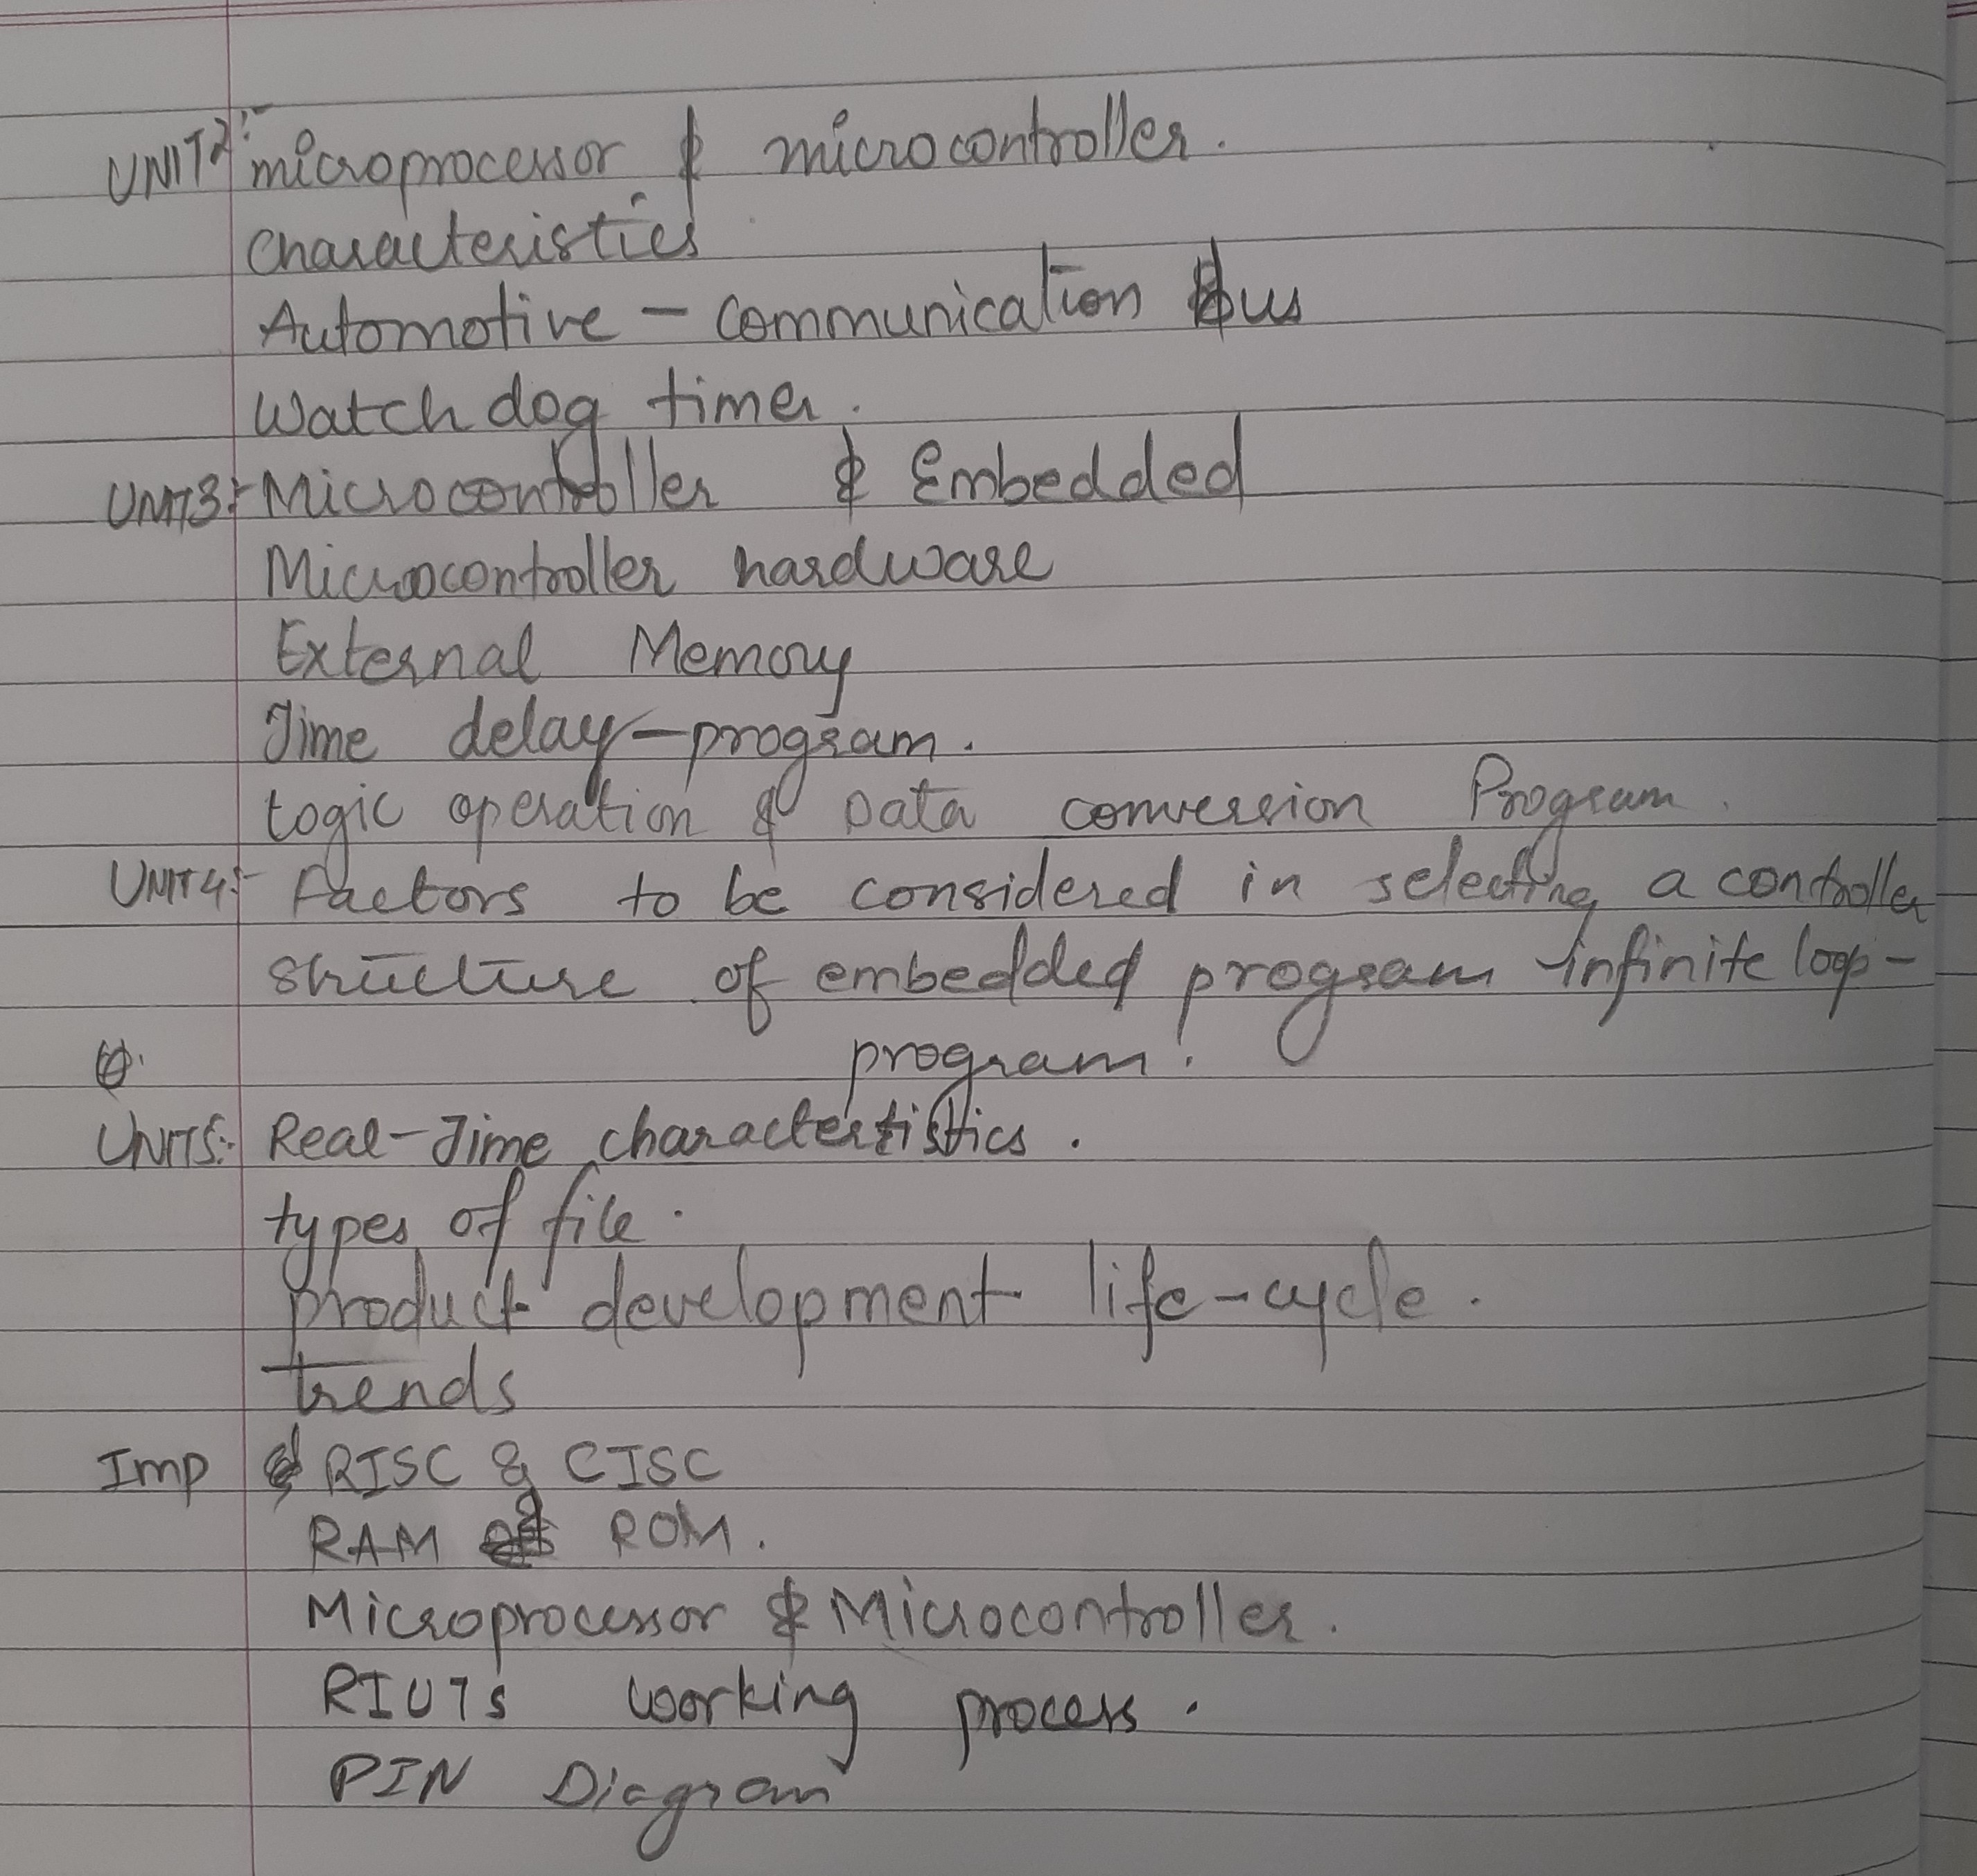 UNIT2:- microprocessor & microcontroller.
characteristics
Automotive - communication bus
Watch dog timer.
UNIT3:- Microcontroller & Embedded
Microcontroller hardware
External Memory
Time delay-program.
Logic operation & Data conversion Program.
UNIT4:- Factors to be considered in selecting a controller
structure of embedded program infinite loop-
program.
UNIT5:- Real-Time characteristics.
types of file.
product development life-cycle.
trends
Imp RISC & CISC
RAM & ROM.
Microprocessor & Microcontroller.
working process.
PIN Diagram